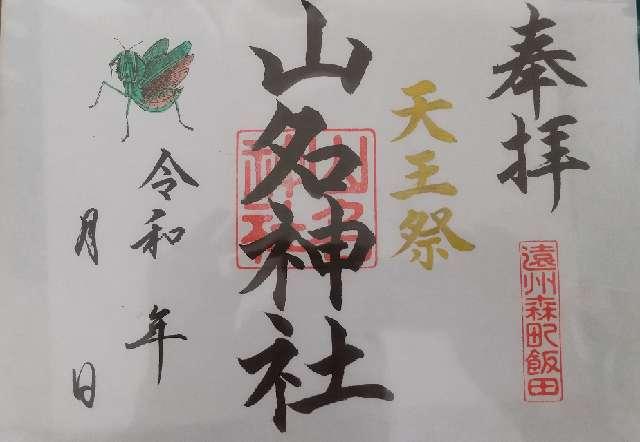 奉拝
遠州森町飯田
天王祭
山名神社
山名神社
令和 年
月 日